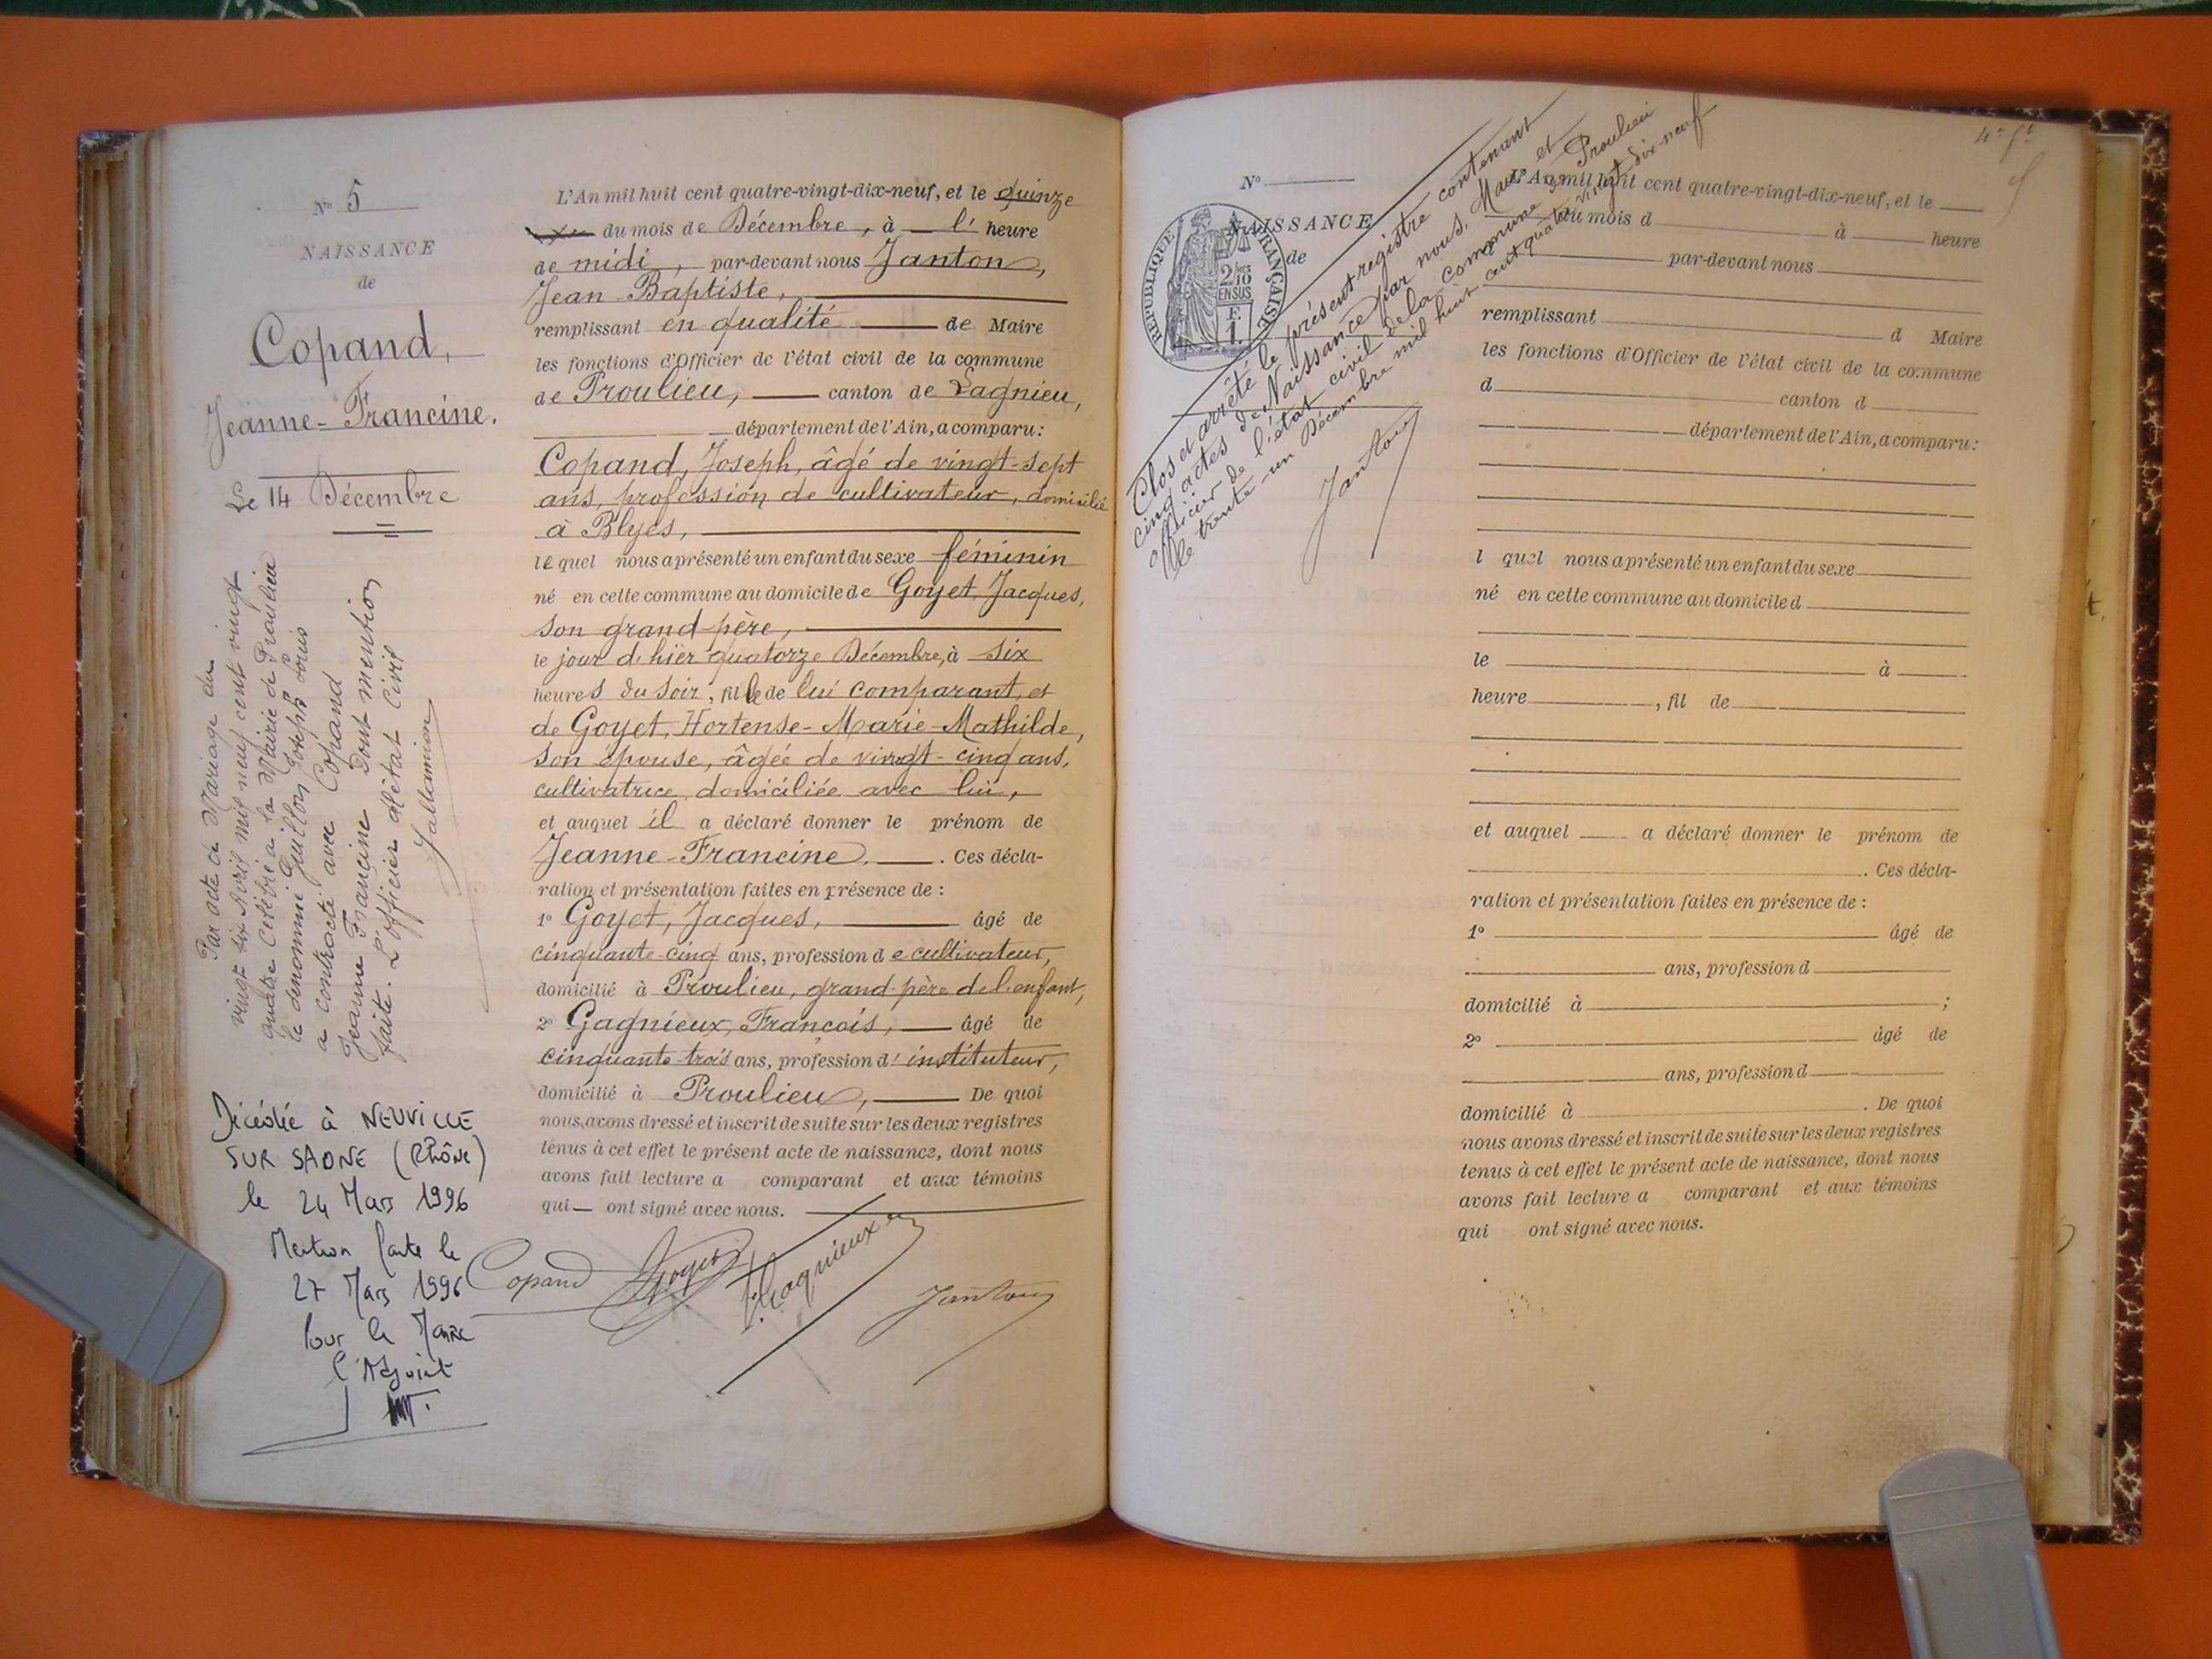 N° 5
NAISSANCE
de
Copand,
Jeanne-Francine.
Le 14 Décembre
Par acte de Mariage du
vingt six Avril mil neuf cent vingt
quatre Célébré à la Mairie de Proulieu
le dénommé Guillon Joseph Louis
a contracté avec Copand
Jeanne Francine Dont mention
faite. L'officier d'état Civil
Jallamion
Décédée à NEUVILLE
SUR SAONE (Rhône)
le 24 Mars 1996
Mention faite le
27 Mars 1996
Pour le Maire
l'Adjoint
L'An mil huit cent quatre-vingt-dix-neuf, et le quinze
du mois de Décembre, à l' heure
de midi, par-devant nous Janton,
Jean Baptiste,
remplissant en qualité de Maire
les fonctions d'Officier de l'état civil de la commune
de Proulieu, canton de Lagnieu,
département de l'Ain, a comparu:
Copand, Joseph, âgé de vingt-sept
ans, profession de cultivateur, domicilié
à Blyes,
lequel nous a présenté un enfant du sexe féminin
né en cette commune au domicile de Goyet, Jacques,
son grand-père,
le jour d'hier quatorze Décembre, à six
heures du soir, fille de lui comparant, et
de Goyet, Hortense-Marie-Mathilde,
son épouse, âgée de vingt-cinq ans,
cultivatrice, domiciliée avec lui,
et auquel il a déclaré donner le prénom de
Jeanne-Francine. Ces décla-
ration et présentation faites en présence de :
1° Goyet, Jacques, âgé de
cinquante-cinq ans, profession de cultivateur,
domicilié à Proulieu, grand-père de l'enfant,
2° Gagnieux, François, âgé de
cinquante-trois ans, profession d'instituteur,
domicilié à Proulieu, De quoi
nous avons dressé et inscrit de suite sur les deux registres
tenus à cet effet le présent acte de naissance, dont nous
avons fait lecture a comparant et aux témoins
qui ont signé avec nous.
Copand Goyet F. Gagnieux Janton
4e ft
N°
NAISSANCE
de
RÉPUBLIQUE FRANÇAISE
2/10 EN SUS
F.
1.
Clos et arrêté le présent registre contenant
cinq actes de Naissance par nous, Maire et
officier de l'état civil de la commune de Proulieu
le trente-un Décembre mil huit cent quatre vingt dix-neuf
Janton
L'An mil huit cent quatre-vingt-dix-neuf, et le
du mois d à heure
par-devant nous
remplissant d Maire
les fonctions d'Officier de l'état civil de la commune
d canton d
département de l'Ain, a comparu:
l quel nous a présenté un enfant du sexe
né en cette commune au domicile d
le à
heure , fil de
et auquel a déclaré donner le prénom de
. Ces décla-
ration et présentation faites en présence de :
1° âgé de
ans, profession d
domicilié à ;
2° âgé de
ans, profession d
domicilié à . De quoi
nous avons dressé et inscrit de suite sur les deux registres
tenus à cet effet le présent acte de naissance, dont nous
avons fait lecture a comparant et aux témoins
qui ont signé avec nous.